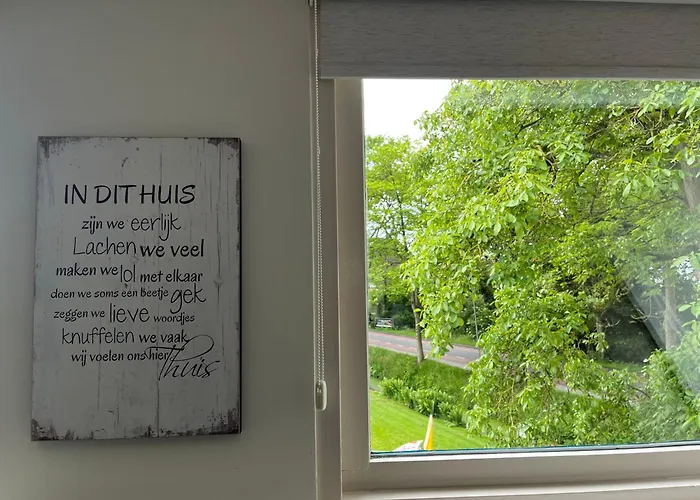 IN DIT HUIS
zijn we eerlijk
Lachen we veel
maken we lol met elkaar
doen we soms een beetje gek
zeggen we lieve woordjes
knuffelen we vaak
wij voelen ons hier Thuis